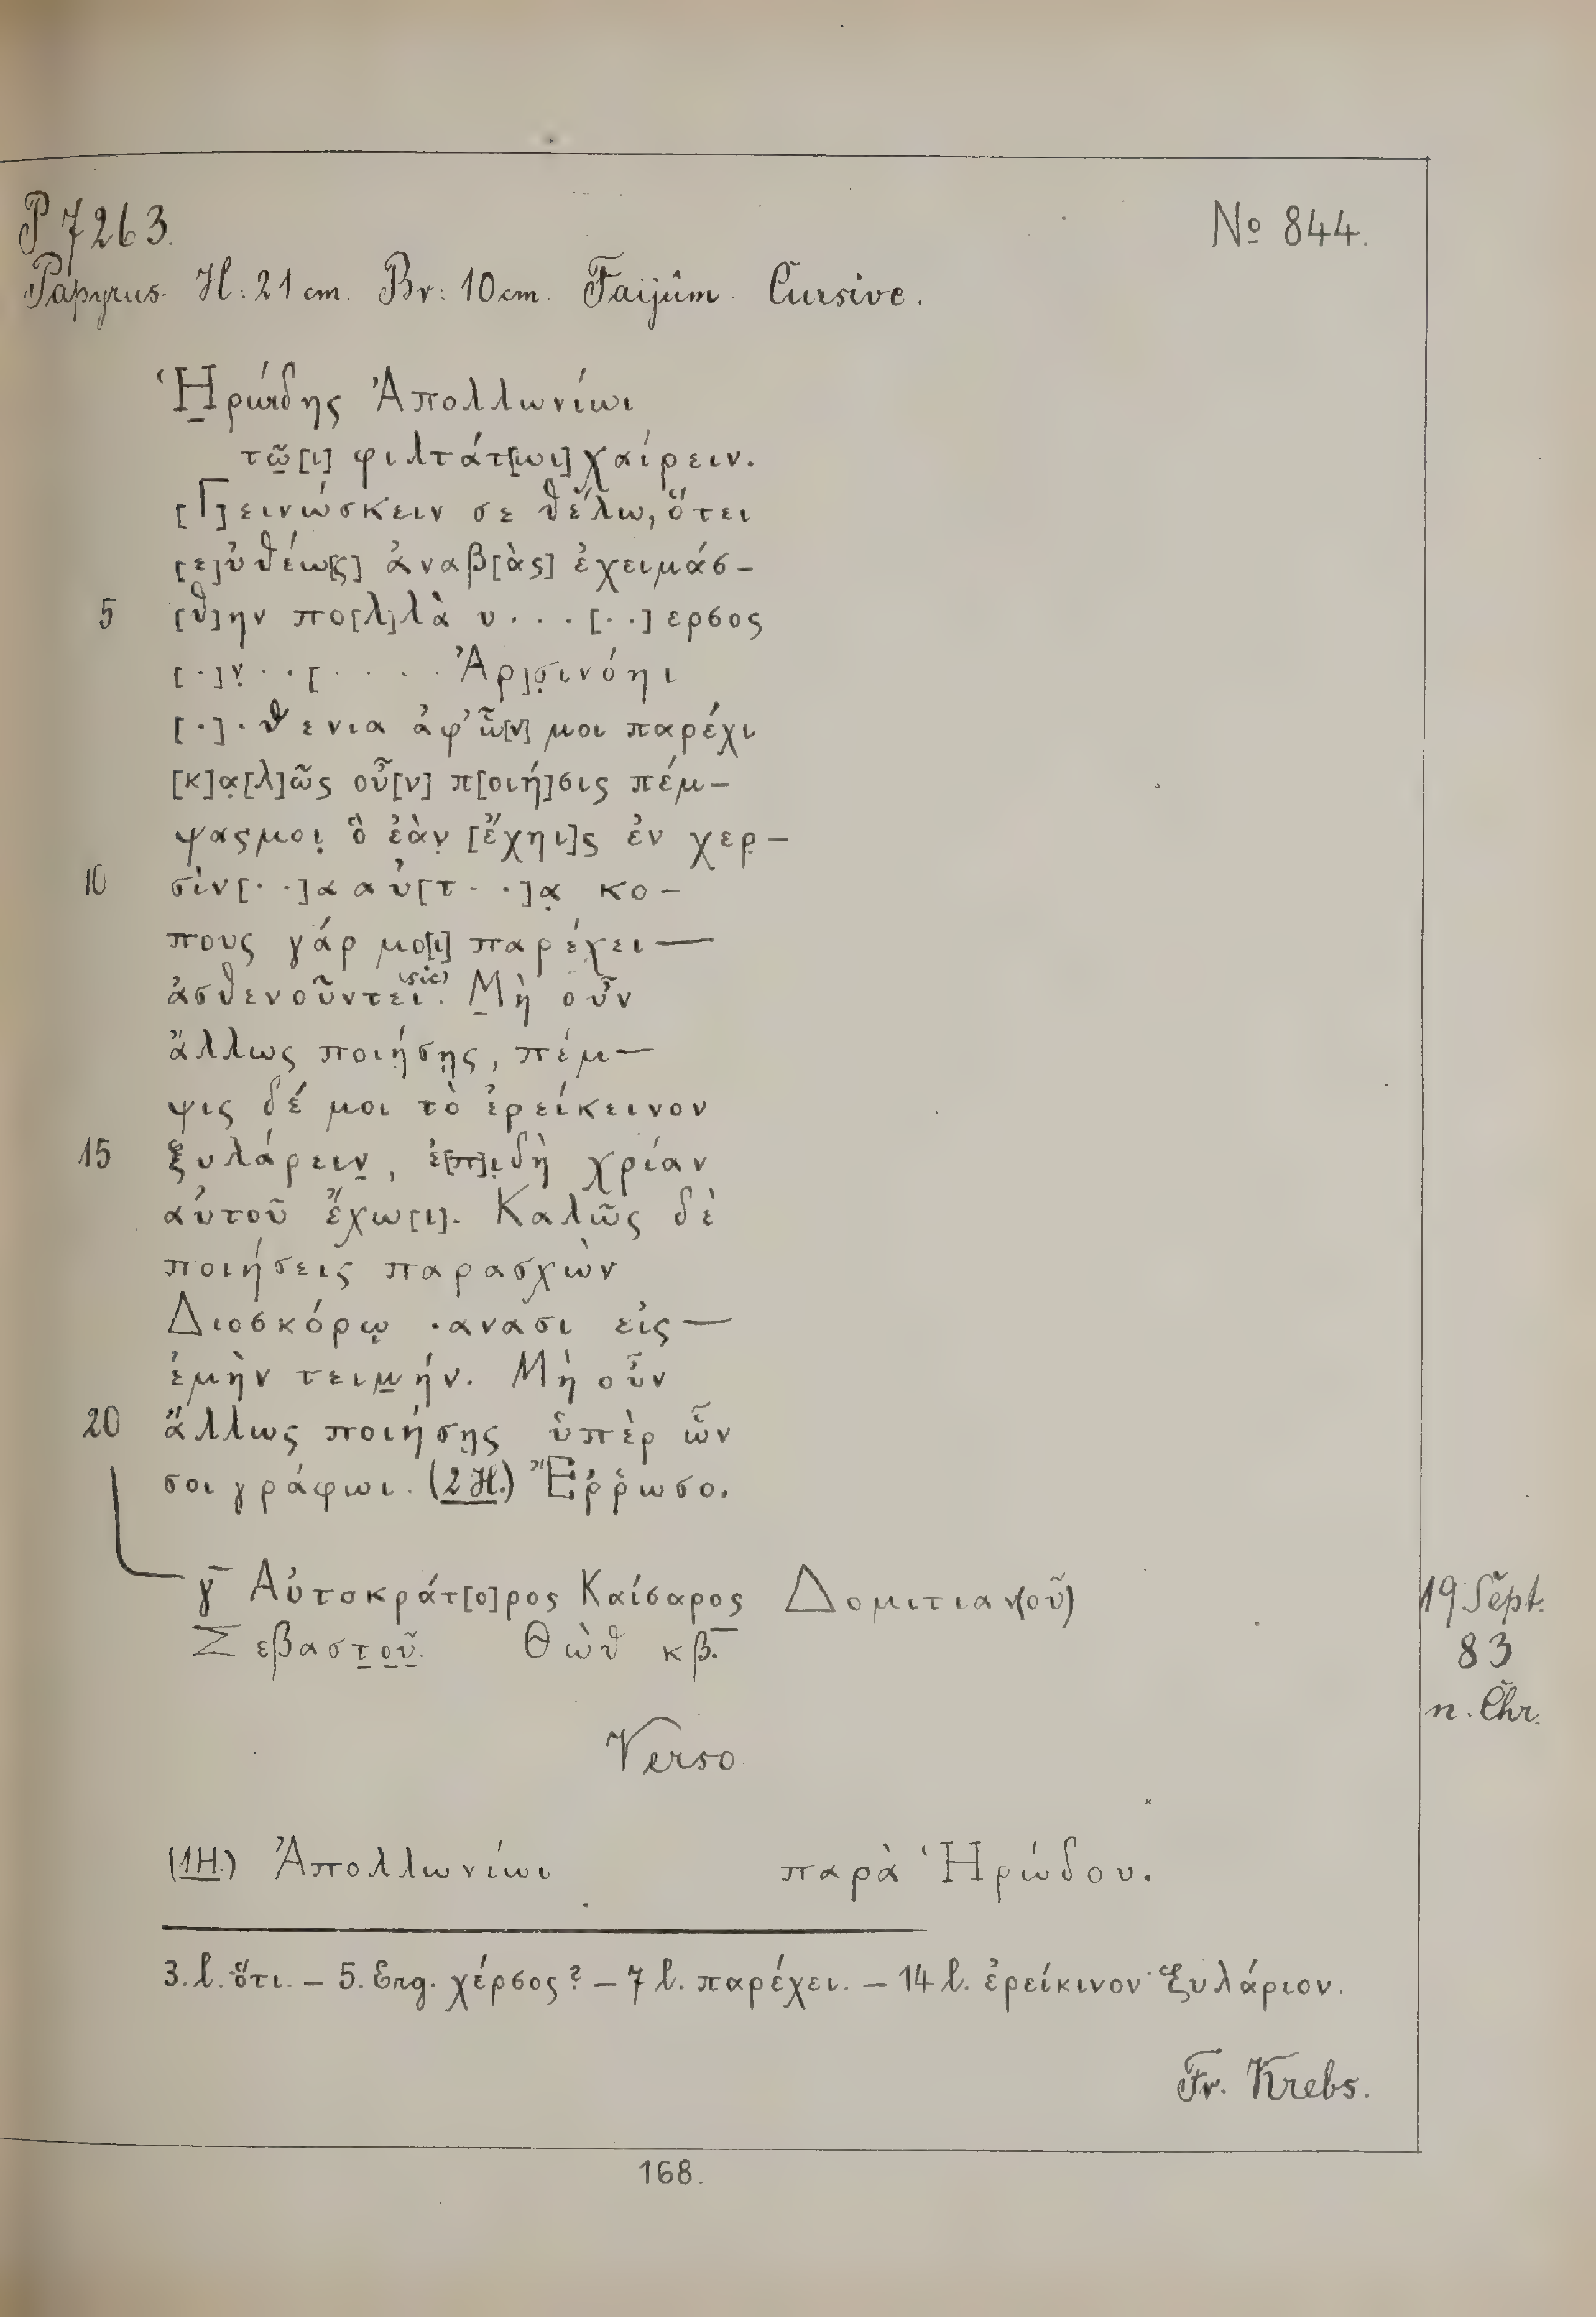 P 7263.
No 844.
Papyrus. H: 21 cm. Br: 10 cm. Faijûm. Cursive.
Ἡρώιδης Ἀπολλωνίωι
τῶ[ι] φιλτάτ[ωι] χαίρειν.
[Γ]εινώσκειν σε θέλω, ὅτει
[ε]ὐθέω[ς] ἀναβ[ὰς] ἐχειμάσ-
5 [θ]ην πο[λ]λὰ υ...[..]ερσος
[.]ν̣..[.... Ἀρ]σ̣ινόηι
[.].θενια ἀφ' ὧ[ν] μοι παρέχι
[κ]α̣[λ]ῶς οὖ[ν] π[οιή]σις πέμ-
ψας μοι̣ ὃ ἐὰν̣ [ἔχηι]ς ἐν χερ̣-
10 σὶν[..]α αὐ[τ..]α̣ κο-
πους γάρ μο[ι] παρέχει —
ἀσθενοῦντει (sic). Μὴ οὖν
ἄλλως ποιήσῃς, πέμ-
ψις δέ μοι τὸ ἐρείκεινον
15 ξυλάρειν̣, ἐ[π]ι̣δὴ χρίαν
αὐτοῦ ἔχω[ι]. Καλῶς δὲ
ποιήσεις παρασχὼν
Διοσκόρῳ .ανασι εἰς —
ἐμὴν τειμ̣ήν. Μὴ οὖν
20 ἄλλως ποιήσῃς ὑπὲρ ὧν
σοι γράφωι. (2 H.) Ἔῤῥωσο.
γ̅ Αὐτοκράτ[ο]ρος Καίσαρος̣ Δομιτιαν(οῦ)
Σεβαστ̣ο̣ῦ̣. Θὼθ κβ̅.
19 Sept.
83
n. Chr.
Verso.
(1 H.) Ἀπολλωνίωι παρὰ Ἡρώδου.
3. l. ὅτι. – 5. Erg. χέρσος? – 7 l. παρέχει. – 14 l. ἐρείκινον ξυλάριον.
Fr. Krebs.
168.